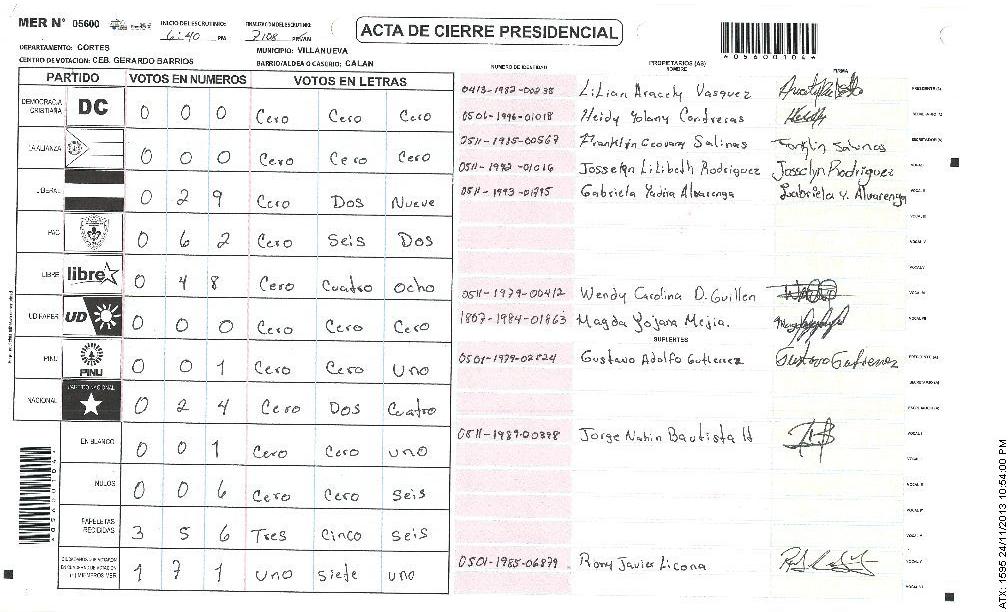 MER N° 05600
INICIO DEL ESCRUTINIO: 6:40 PM
ACTA DE CIERRE PRESIDENCIAL
DEPARTAMENTO: CORTES
MUNICIPIO: VILLANUEVA
CENTRO DE VOTACION: CEB. GERARDO BARRIOS
BARRIO/ALDEA O CASERIO: CALAN
PARTIDO VOTOS EN NUMEROS VOTOS EN LETRAS
NUMERO DE IDENTIDAD PROPIETARIOS (AS) NOMBRE FIRMA
DEMOCRACIA CRISTIANA DC 0 0 0 Cero Cero Cero
LA ALIANZA 0 0 0 Cero Cero Cero
LIBERAL 0 2 9 Cero Dos Nueve
PAC 0 6 2 Cero Seis Dos
LIBRE libre 0 4 8 Cero Cuatro Ocho
UD FAPER UD 0 0 0 Cero Cero Cero
PINU PINU 0 0 1 Cero Cero Uno
NACIONAL PARTIDO NACIONAL 0 2 4 Cero Dos Cuatro
EN BLANCO 0 0 1 Cero Cero uno
NULOS 0 0 6 Cero Cero Seis
PAPELETAS RECIBIDAS 3 5 6 Tres cinco seis
1 7 1 uno siete uno
Lilian Aracely Vasquez
0506-1996-01018 Heidy Yolany Contreras
0511-1985-00567 Franklin Geovany Salinas Franklin Salinas
0511-1992-01016 Josselyn Lilibeth Rodriguez Josselyn Rodriguez
Gabriela Yadira Alvarenga Gabriela Y. Alvarenga
0511-1979-00412 Wendy Carolina D. Guillen
1807-1984-01863 Magda Yojana Mejia.
SUPLENTES
0501-1979-02824 Gustavo Adolfo Gutierrez Gustavo Gutierrez
0511-1989-00398 Jorge Nahin Bautista H
0501-1985-06879 Rony Javier Licona
ATX: 1595 24/11/2013 10:54:00 PM